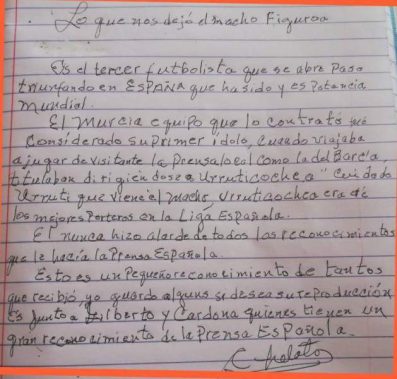 Lo que nos dejó el macho Figueroa
Es el tercer futbolista que se abre Paso
triunfando en ESPAÑA que ha sido y es Potencia
Mundial.
El Murcia equipo que lo contrato fué
Considerado su Primer idolo, Cuando viajaba
a jugar de visitante la Prensa local como la del Barc'a,
titulaban dirigiendose a Urruticochea "Cuidado
Urruti que viene el macho, Urruticochea era de
los mejores Porteros en la Liga Española.
El nunca hizo alarde de todos los reconocimientos
que le hacia la Prensa Española.
Esto es un Pequeño reconocimiento de tantos
que recibió, yo guardo algunos si desea su reProducción
Es junto a Gilberto y Cardona quienes tienen un
gran reconocimiento de la Prensa Española.